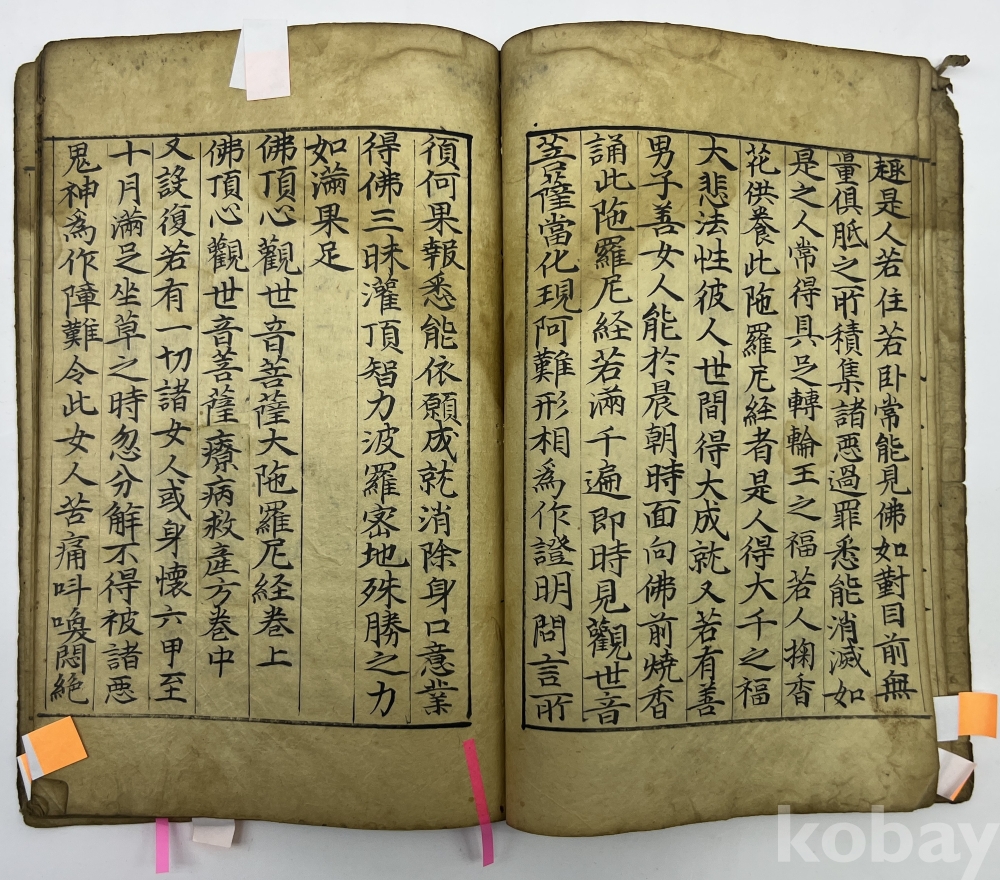 趣是人若住若卧常能見佛如對目前無
量俱胝之所積集諸惡過罪悉能消滅如
是之人常得具足轉輪王之福若人掬香
花供養此陁羅尼経者是人得大千之福
大悲法性彼人世間得大成就又若有善
男子善女人能於晨朝時面向佛前燒香
誦此陁羅尼経若滿千遍即時見觀世音
菩薩當化現阿難形相爲作證明問言所
須何果報悉能依願成就消除身口意業
得佛三昧灌頂智力波羅密地殊勝之力
如滿果足
佛頂心觀世音菩薩大陁羅尼経卷上
佛頂心觀世音菩薩療病救產方卷中
又設復若有一切諸女人或身懷六甲至
十月滿足坐草之時忽分解不得被諸惡
鬼神爲作障難令此女人苦痛呌喚悶絶
kobay